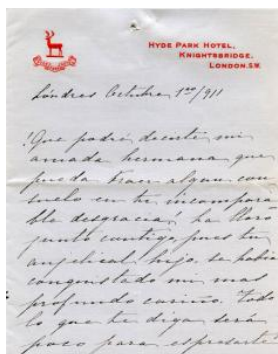 HYDE PARK HOTEL,
KNIGHTSBRIDGE,
LONDON.S.W.
Londres Octubre 1º/911
!Que podré decirte mi
amada hermana que
pueda traer algun con
suelo en tu incompara
ble desgracia! ha llora
junto contigo, pues tu
angelical hijo, se habia
conquistado mi mas
profundo cariño. Todo
lo que te diga será
poco para espresarte